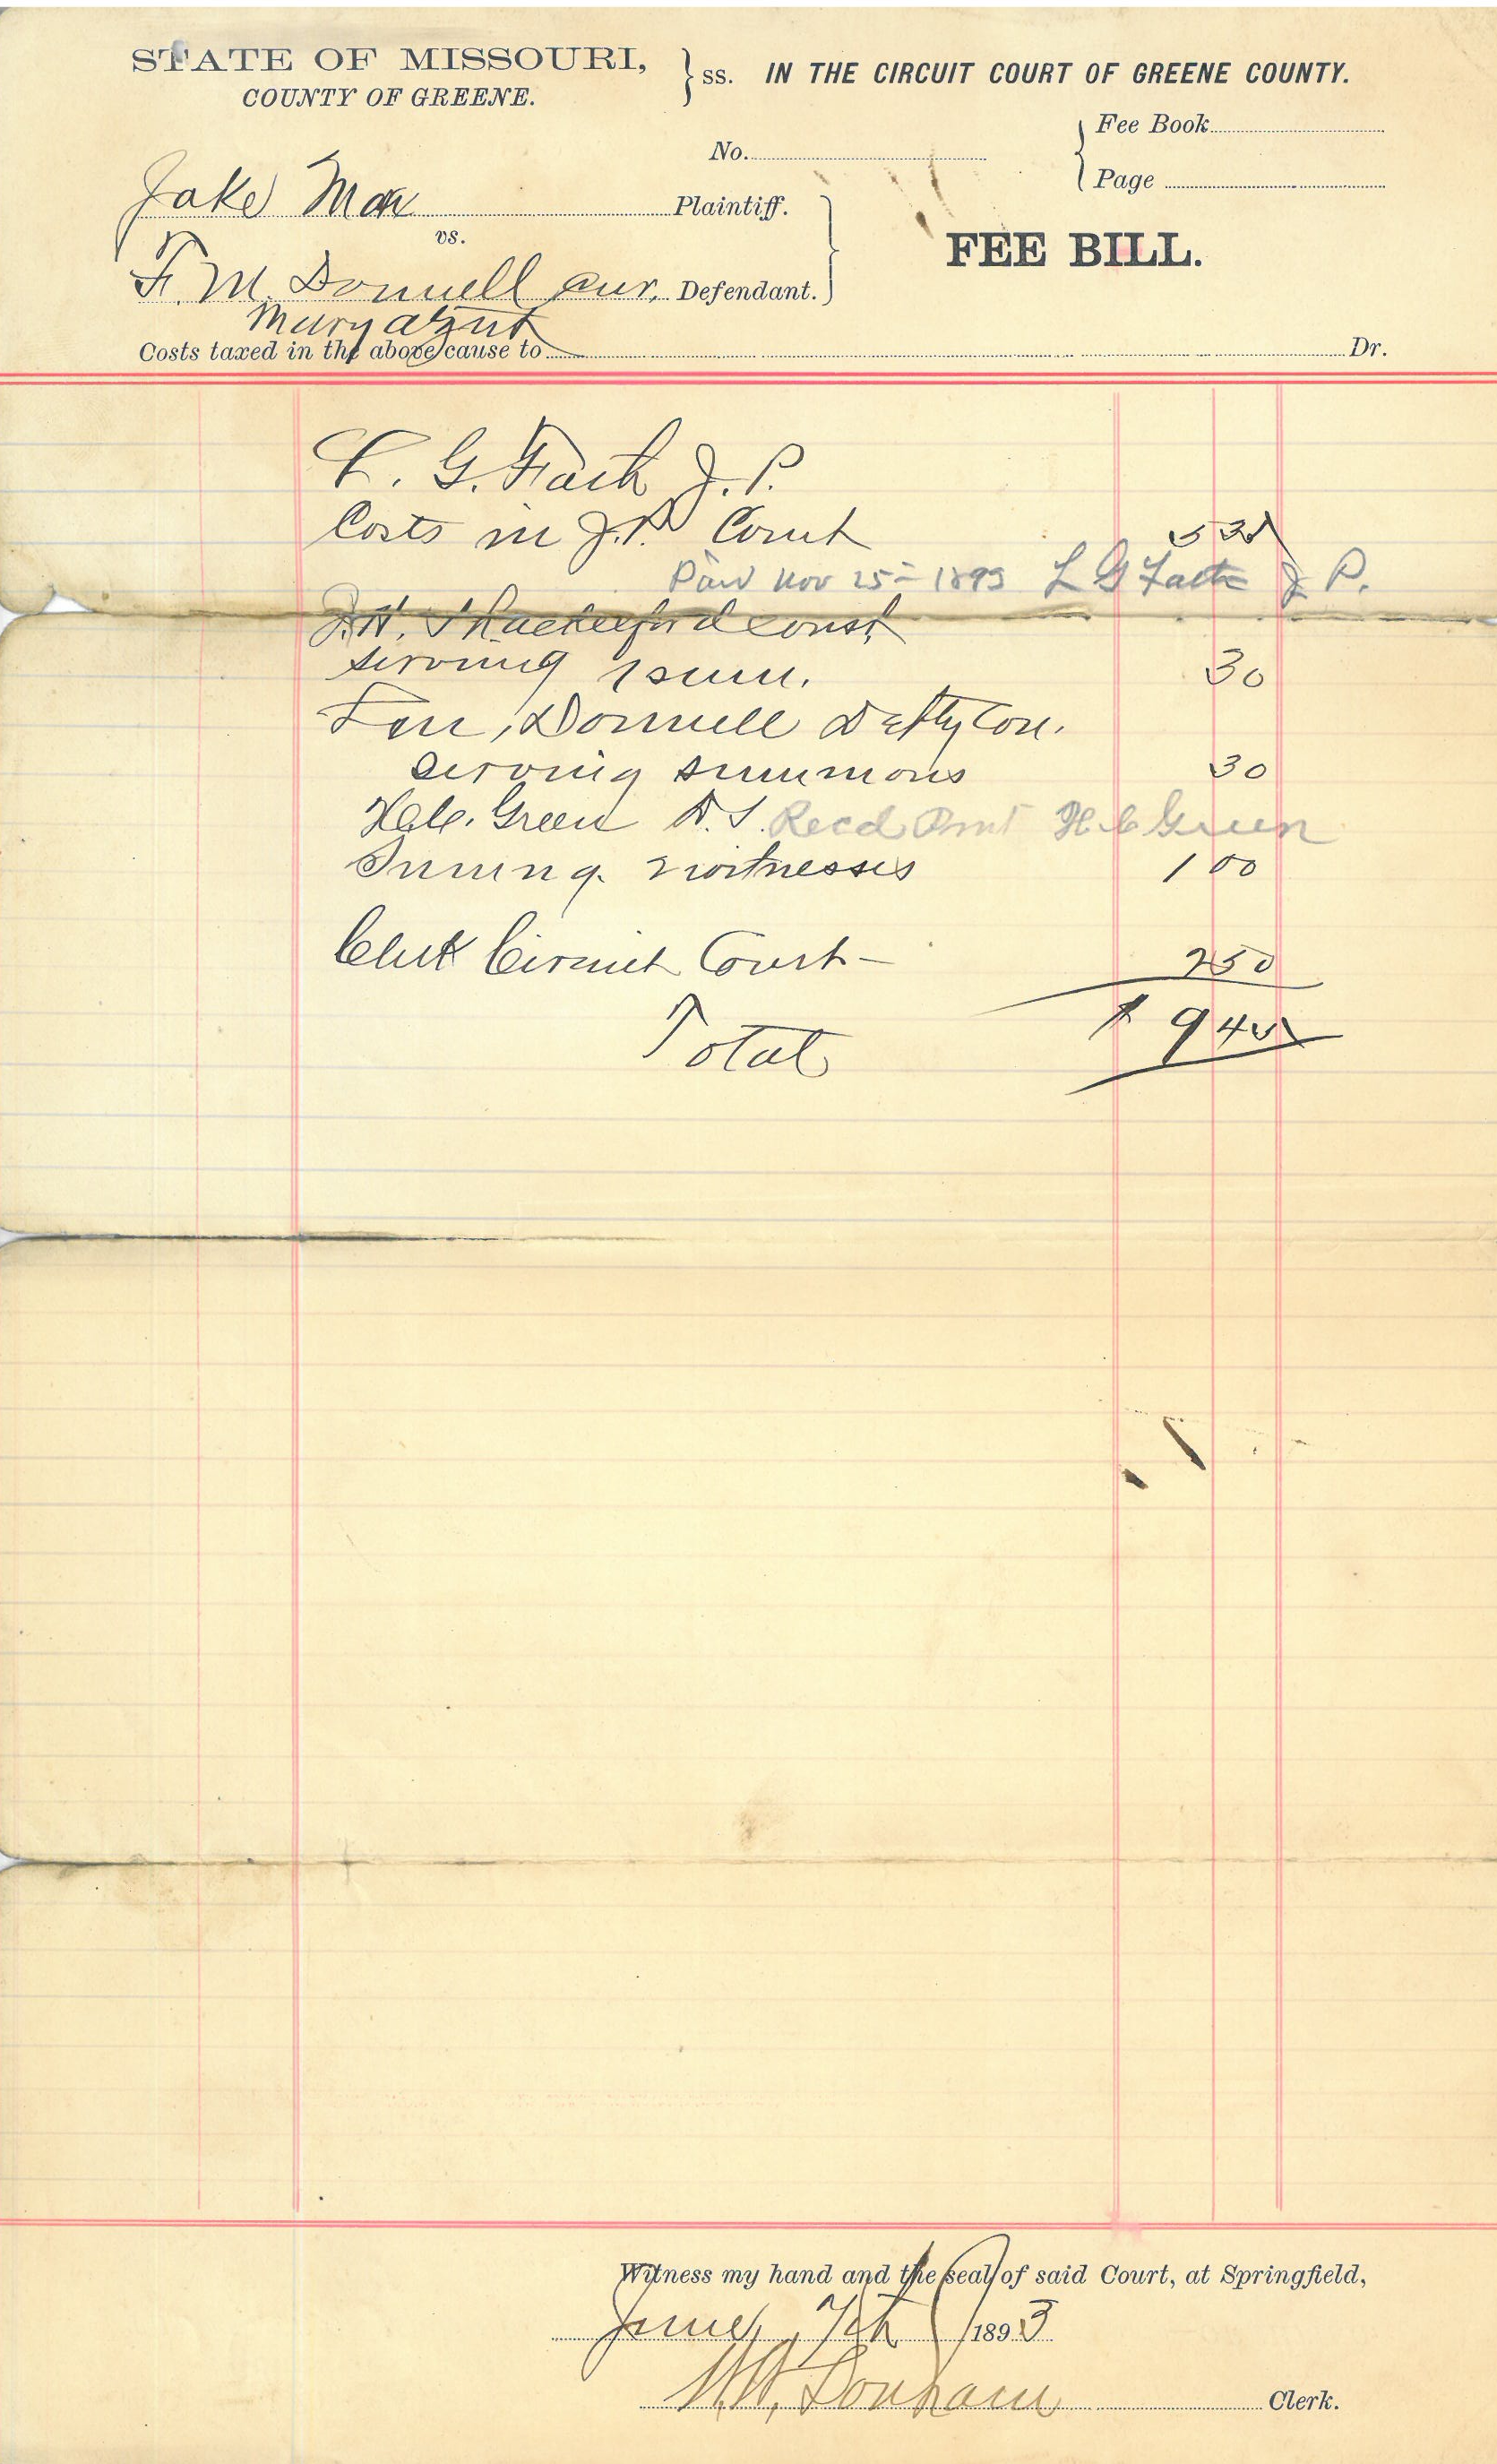 STATE OF MISSOURI,
COUNTY OF GREENE.
ss. IN THE CIRCUIT COURT OF GREENE COUNTY.
Fee Book
No.
Page
Jake Plaintiff.
vs.
FEE BILL.
F. M. Donnell Defendant.
Mary
Costs taxed in the above cause to Dr.
L. G. Fath J. P.
Costs in J.P. Court 5 30
Paid Nov 25 = 1893 L G Fath J P.
J.H. Shackelford const
serving 1 summ. 30
Donnell Depty Con.
Serving summons 30
H.C. Green D.S. Recd Pmt H C Green
Suming. 2 witnesses 1 00
Clerk Circuit Court - 2 50
Total $ 9 40
Witness my hand and the seal of said Court, at Springfield,
June, 7th 1893
Donham Clerk.